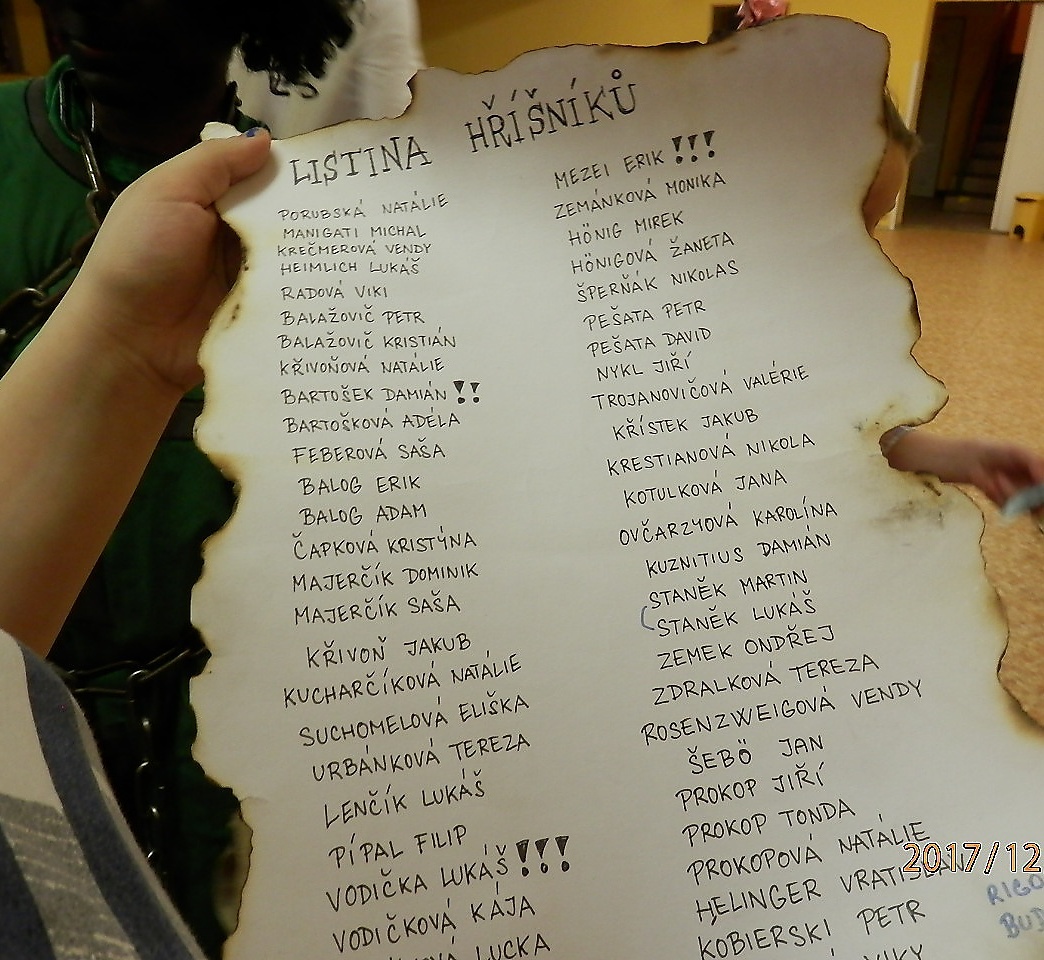 LISTINA HŘÍŠNÍKŮ
PORUBSKÁ NATÁLIE
MANIGATI MICHAL
KREČMEROVÁ VENDY
HEIMLICH LUKÁŠ
RADOVÁ VIKI
BALAŽOVIČ PETR
BALAŽOVIČ KRISTIÁN
KŘIVOŇOVÁ NATÁLIE
BARTOŠEK DAMIÁN !!
BARTOŠKOVÁ ADÉLA
FEBEROVÁ SAŠA
BALOG ERIK
BALOG ADAM
ČAPKOVÁ KRISTÝNA
MAJERČÍK DOMINIK
MAJERČÍK SAŠA
KŘIVOŇ JAKUB
KUCHARČÍKOVÁ NATÁLIE
SUCHOMELOVÁ ELIŠKA
URBÁNKOVÁ TEREZA
LENČÍK LUKÁŠ
PÍPAL FILIP
VODIČKA LUKÁŠ !!!
VODIČKOVÁ KÁJA
LUCKA
MEZEI ERIK !!!
ZEMÁNKOVÁ MONIKA
HÖNIG MIREK
HÖNIGOVÁ ŽANETA
ŠPERŇÁK NIKOLAS
PEŠATA PETR
PEŠATA DAVID
NYKL JIŘÍ
TROJANOVIČOVÁ VALÉRIE
KŘÍSTEK JAKUB
KRESTIANOVÁ NIKOLA
KOTULKOVÁ JANA
OVČARZYOVÁ KAROLÍNA
KUZNITIUS DAMIÁN
STANĚK MARTIN
STANĚK LUKÁŠ
ZEMEK ONDŘEJ
ZDRALKOVÁ TEREZA
ROSENZWEIGOVÁ VENDY
ŠEBÖ JAN
PROKOP JIŘÍ
PROKOP TONDA
PROKOPOVÁ NATÁLIE
HELINGER VRATISLAV
KOBIERSKI PETR
VIKY
RIGO
BUD
2017/12